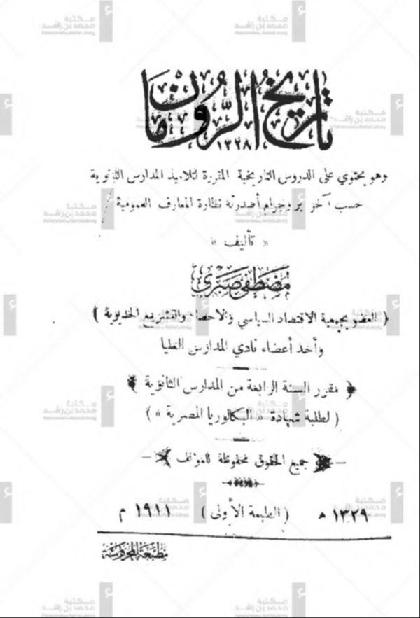 تاريخ الرُّومان
١٣٢٨
وهو يحتوي على الدروس التاريخية المقررة لتلاميذ المدارس الثانوية
حسب آخر بروجرام أصدرته نظارة المعارف العمومية
« تأليف »
مصطفى صبري
( العضو بجمعية الاقتصاد السياسي والاحصاء والتشريع الخديوية )
وأحد أعضاء نادي المدارس العليا
مقرر السنة الرابعة من المدارس الثانوية
( لطلبة شهادة « البكالوريا المصرية » )
جميع الحقوق محفوظة للمؤلف
١٣٢٩ ﻫ ( الطبعة الأولى ) ١٩١١ م
مطبعة المحروسة